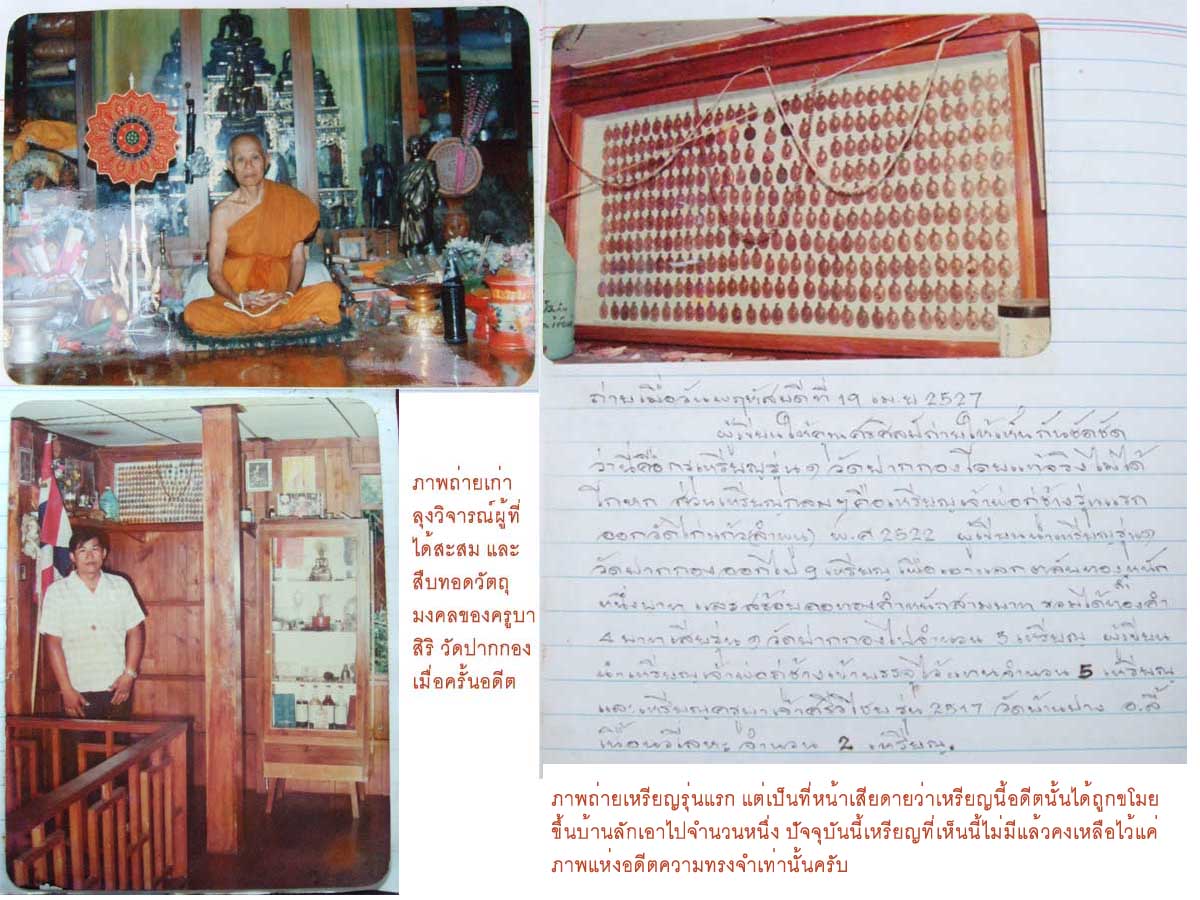 ภาพถ่ายเก่า
ลุงวิจารณ์ผู้ที่
ได้สะสม และ
สืบทอดวัตถุ
มงคลของครูบา
สิริ วัดปากกอง
เมื่อครั้นอดีต
ถ่ายเมื่อวันพฤหัสบดีที่ 19 เม.ย 2527
ผู้เขียนให้คุณศรศิลป์ถ่ายให้เห็นกันชัดชัด
ว่านี่คือกรุเหรียญรุ่น ๑ วัดปากกองโดยแท้จริงไม่ได้
โกหก ส่วนเหรียญกลมๆคือเหรียญเจ้าพ่อกู่ช้างรุ่นแรก
ออกวัดไก่แก้ว(ลำพูน) พ.ศ 2522 ผู้เขียนนำเหรียญรุ่น๑
วัดปากกองออกไป ๆ เหรียญ เพื่อเอาแลกตลับทองหนัก
หนึ่งบาท และสร้อยคอทองคำหนักสามบาท รวมได้ทองคำ
4 บาทเสียรุ่น ๑ วัดปากกองไปจำนวน 5 เหรียญ ผู้เขียน
นำเหรียญเจ้าพ่อกู่ช้างเข้าบรรจุไว้แทนจำนวน 5 เหรียญ
และเหรียญครูบาเจ้าศรีวิไชย รุ่น 2517 วัดบ้านปาง อ.ลี้
จำนวน 2 เหรียญ.
ภาพถ่ายเหรียญรุ่นแรก แต่เป็นที่หน้าเสียดายว่าเหรียญนี้อดีตนั้นได้ถูกขโมย
ขึ้นบ้านลักเอาไปจำนวนหนึ่ง ปัจจุบันนี้เหรียญที่เห็นนี้ไม่มีแล้วคงเหลือไว้แค่
ภาพแห่งอดีตความทรงจำเท่านั้นครับ